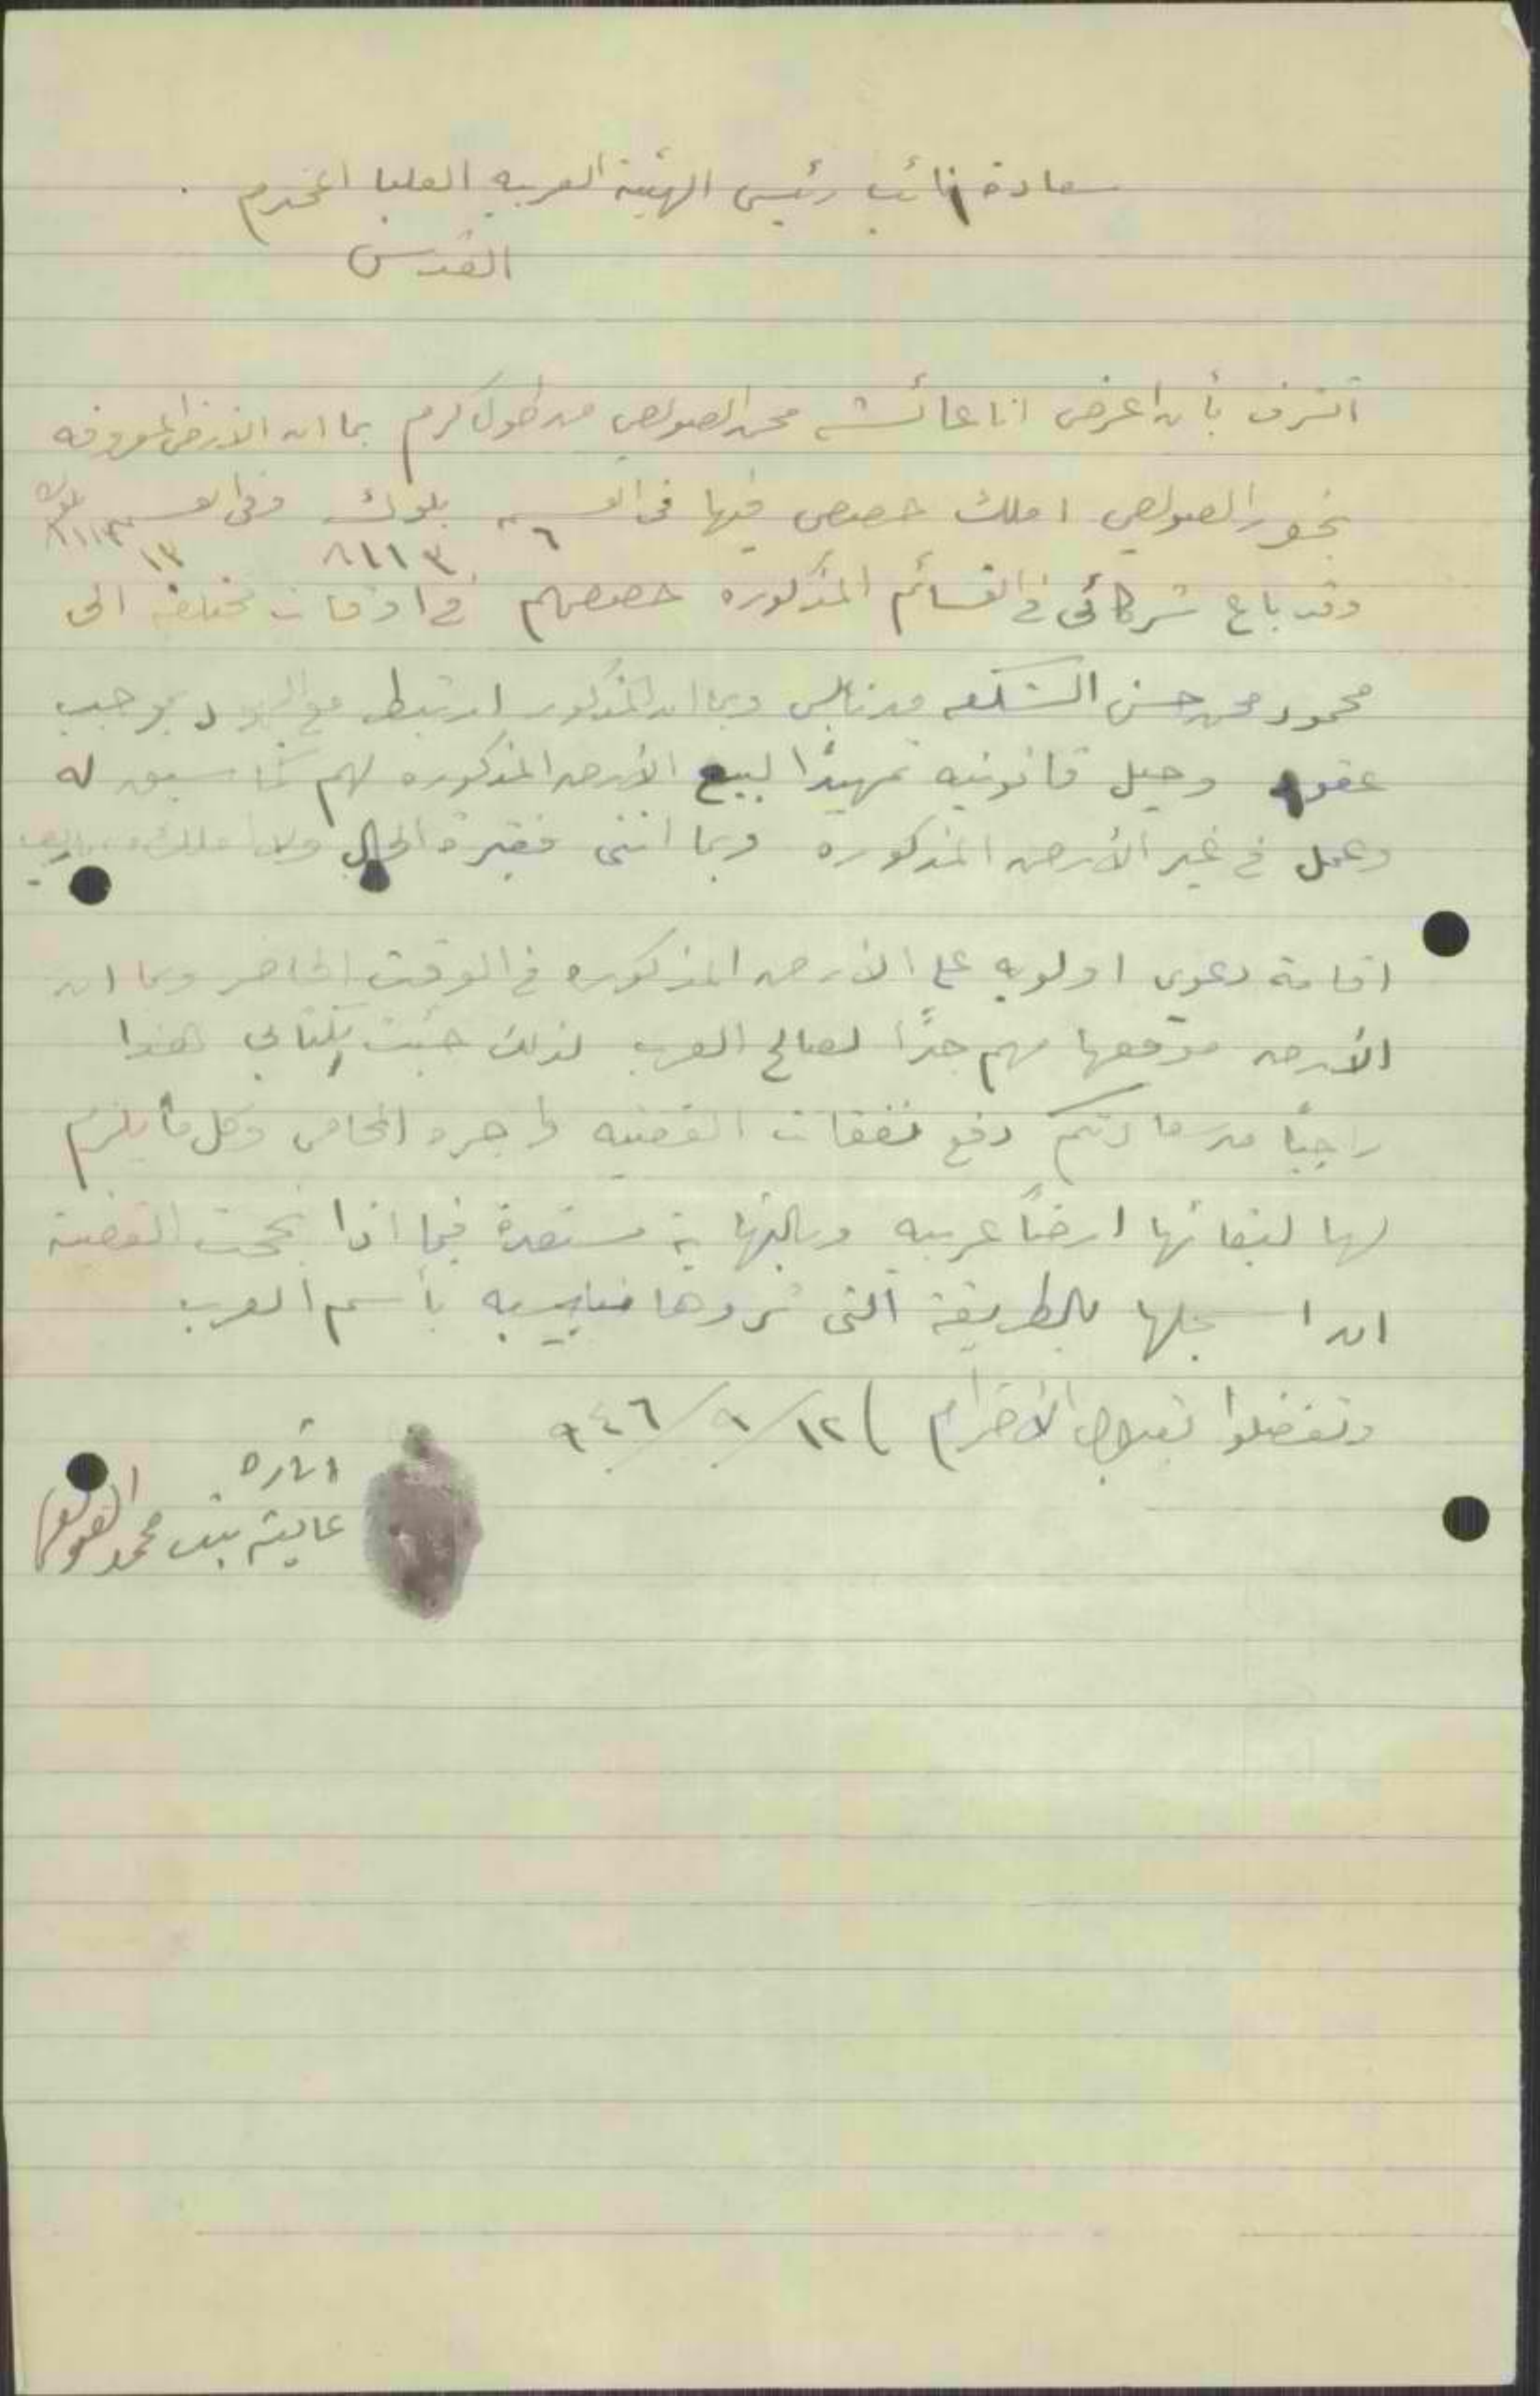 سعادة نائب رئيس الهيئة العربيه العليا المحترم .
القدس
أتشرف بأن اعرض انا عائشه محمد الصويص من طول كرم بما ان الارض المعروفه
بخور الصويص املك حصص فيها في القسيمه ٦ بلوك ٨١١٣ وفي القسيمه ١٣ بلوك ٨١١٣
وقد باع شركائي في القسائم المذكوره حصصهم في اوقات مختلفه الى
محمود محمد حسن الشكعه من نابلس وبما ان المذكور ارتبط مع اليهود بموجب
عقود وحيل قانونيه تمهيدًا لبيع الأرض المذكوره لهم كما سبق له
وعمل في غير الأرض المذكوره وبما انني فقيرة الحال ولا املك مصاريف
اقامة دعوى اولويه على الارض المذكوره في الوقت الحاضر وبما ان
الأرض موقعها مهم جدًا لصالح العرب لذلك جئت بكتابي هذا
راجيًا من سعادتكم دفع نفقات القضيه واجرة المحامي وكل ما يلزم
لها لبقائها ارضًا عربيه وبالنهاية مستعدة فيما اذا نجحت القضية
ان اسجلها بالطريقة التي تروها مناسبه بأسم العرب
وتفضلوا بقبول الأحترام ) ١٢/٩/٩٤٦
عايشه بنت محمد الصويص